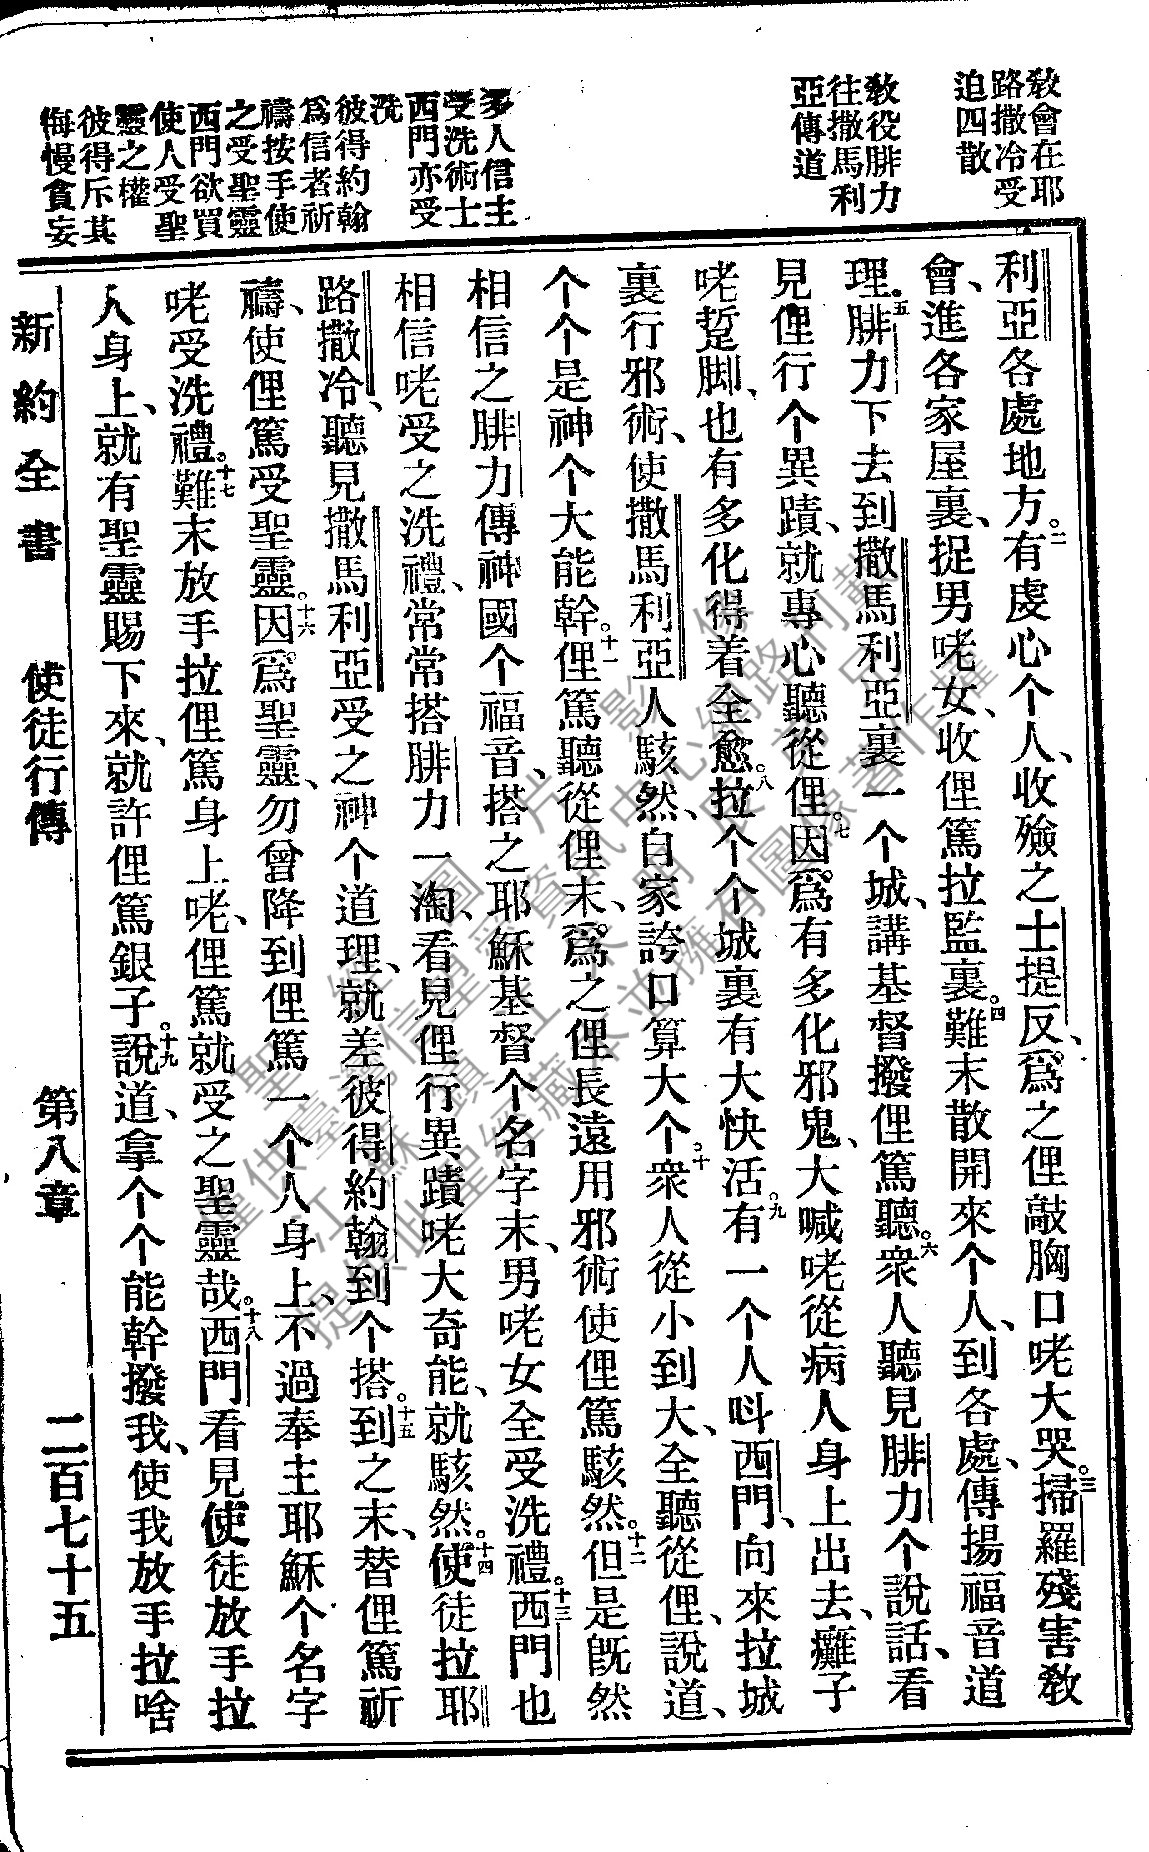 教會在耶
路撒冷受
迫四散
教役腓力
往撒馬利
亞傳道
多人信主
受洗術士
西門亦受
洗
彼得約翰
為信者祈
禱按手使
之受聖靈
西門欲買
使人受聖
靈之權
彼得斥其
侮慢貪妄
利亞各處地方。二有虔心个人、收殮之士提反、為之俚敲胸口咾大哭。三掃羅殘害教
會、進各家屋裏、捉男咾女、收俚篤拉監裏。四難末散開來个人、到各處、傳揚福音道
理。五腓力下去到撒馬利亞裏一个城、講基督撥俚篤聽。六衆人聽見腓力个說話、看
見俚行个異蹟、就專心聽從俚。七因為有多化邪鬼、大喊咾從病人身上出去、癱子
咾蹩脚、也有多化得着全愈。八拉个个城裏有大快活。九有一个人呌西門、向來拉城
裏行邪術、使撒馬利亞人駭然、自家誇口算大个。十衆人從小到大、全聽從俚、說道、
个个是神个大能幹。十一俚篤聽從俚末、為之俚長遠用邪術使俚篤駭然。十二但是旣然
相信之腓力傳神國个福音、搭之耶穌基督个名字末、男咾女全受洗禮。十三西門也
相信咾受之洗禮、常常搭腓力一淘、看見俚行異蹟咾大奇能、就駭然。十四使徒拉耶
路撒冷、聽見撒馬利亞受之神个道理、就差彼得約翰到个搭。十五到之末、替俚篤祈
禱、使俚篤受聖靈。十六因為聖靈、勿曾降到俚篤一个人身上、不過奉主耶穌个名字
咾受洗禮。十七難末放手拉俚篤身上咾、俚篤就受之聖靈哉。十八西門看見使徒放手拉
人身上、就有聖靈賜下來、就許俚篤銀子。十九說道、拿个个能幹撥我、使我放手拉啥
新約全書 使徒行傳 第八章 二百七十五